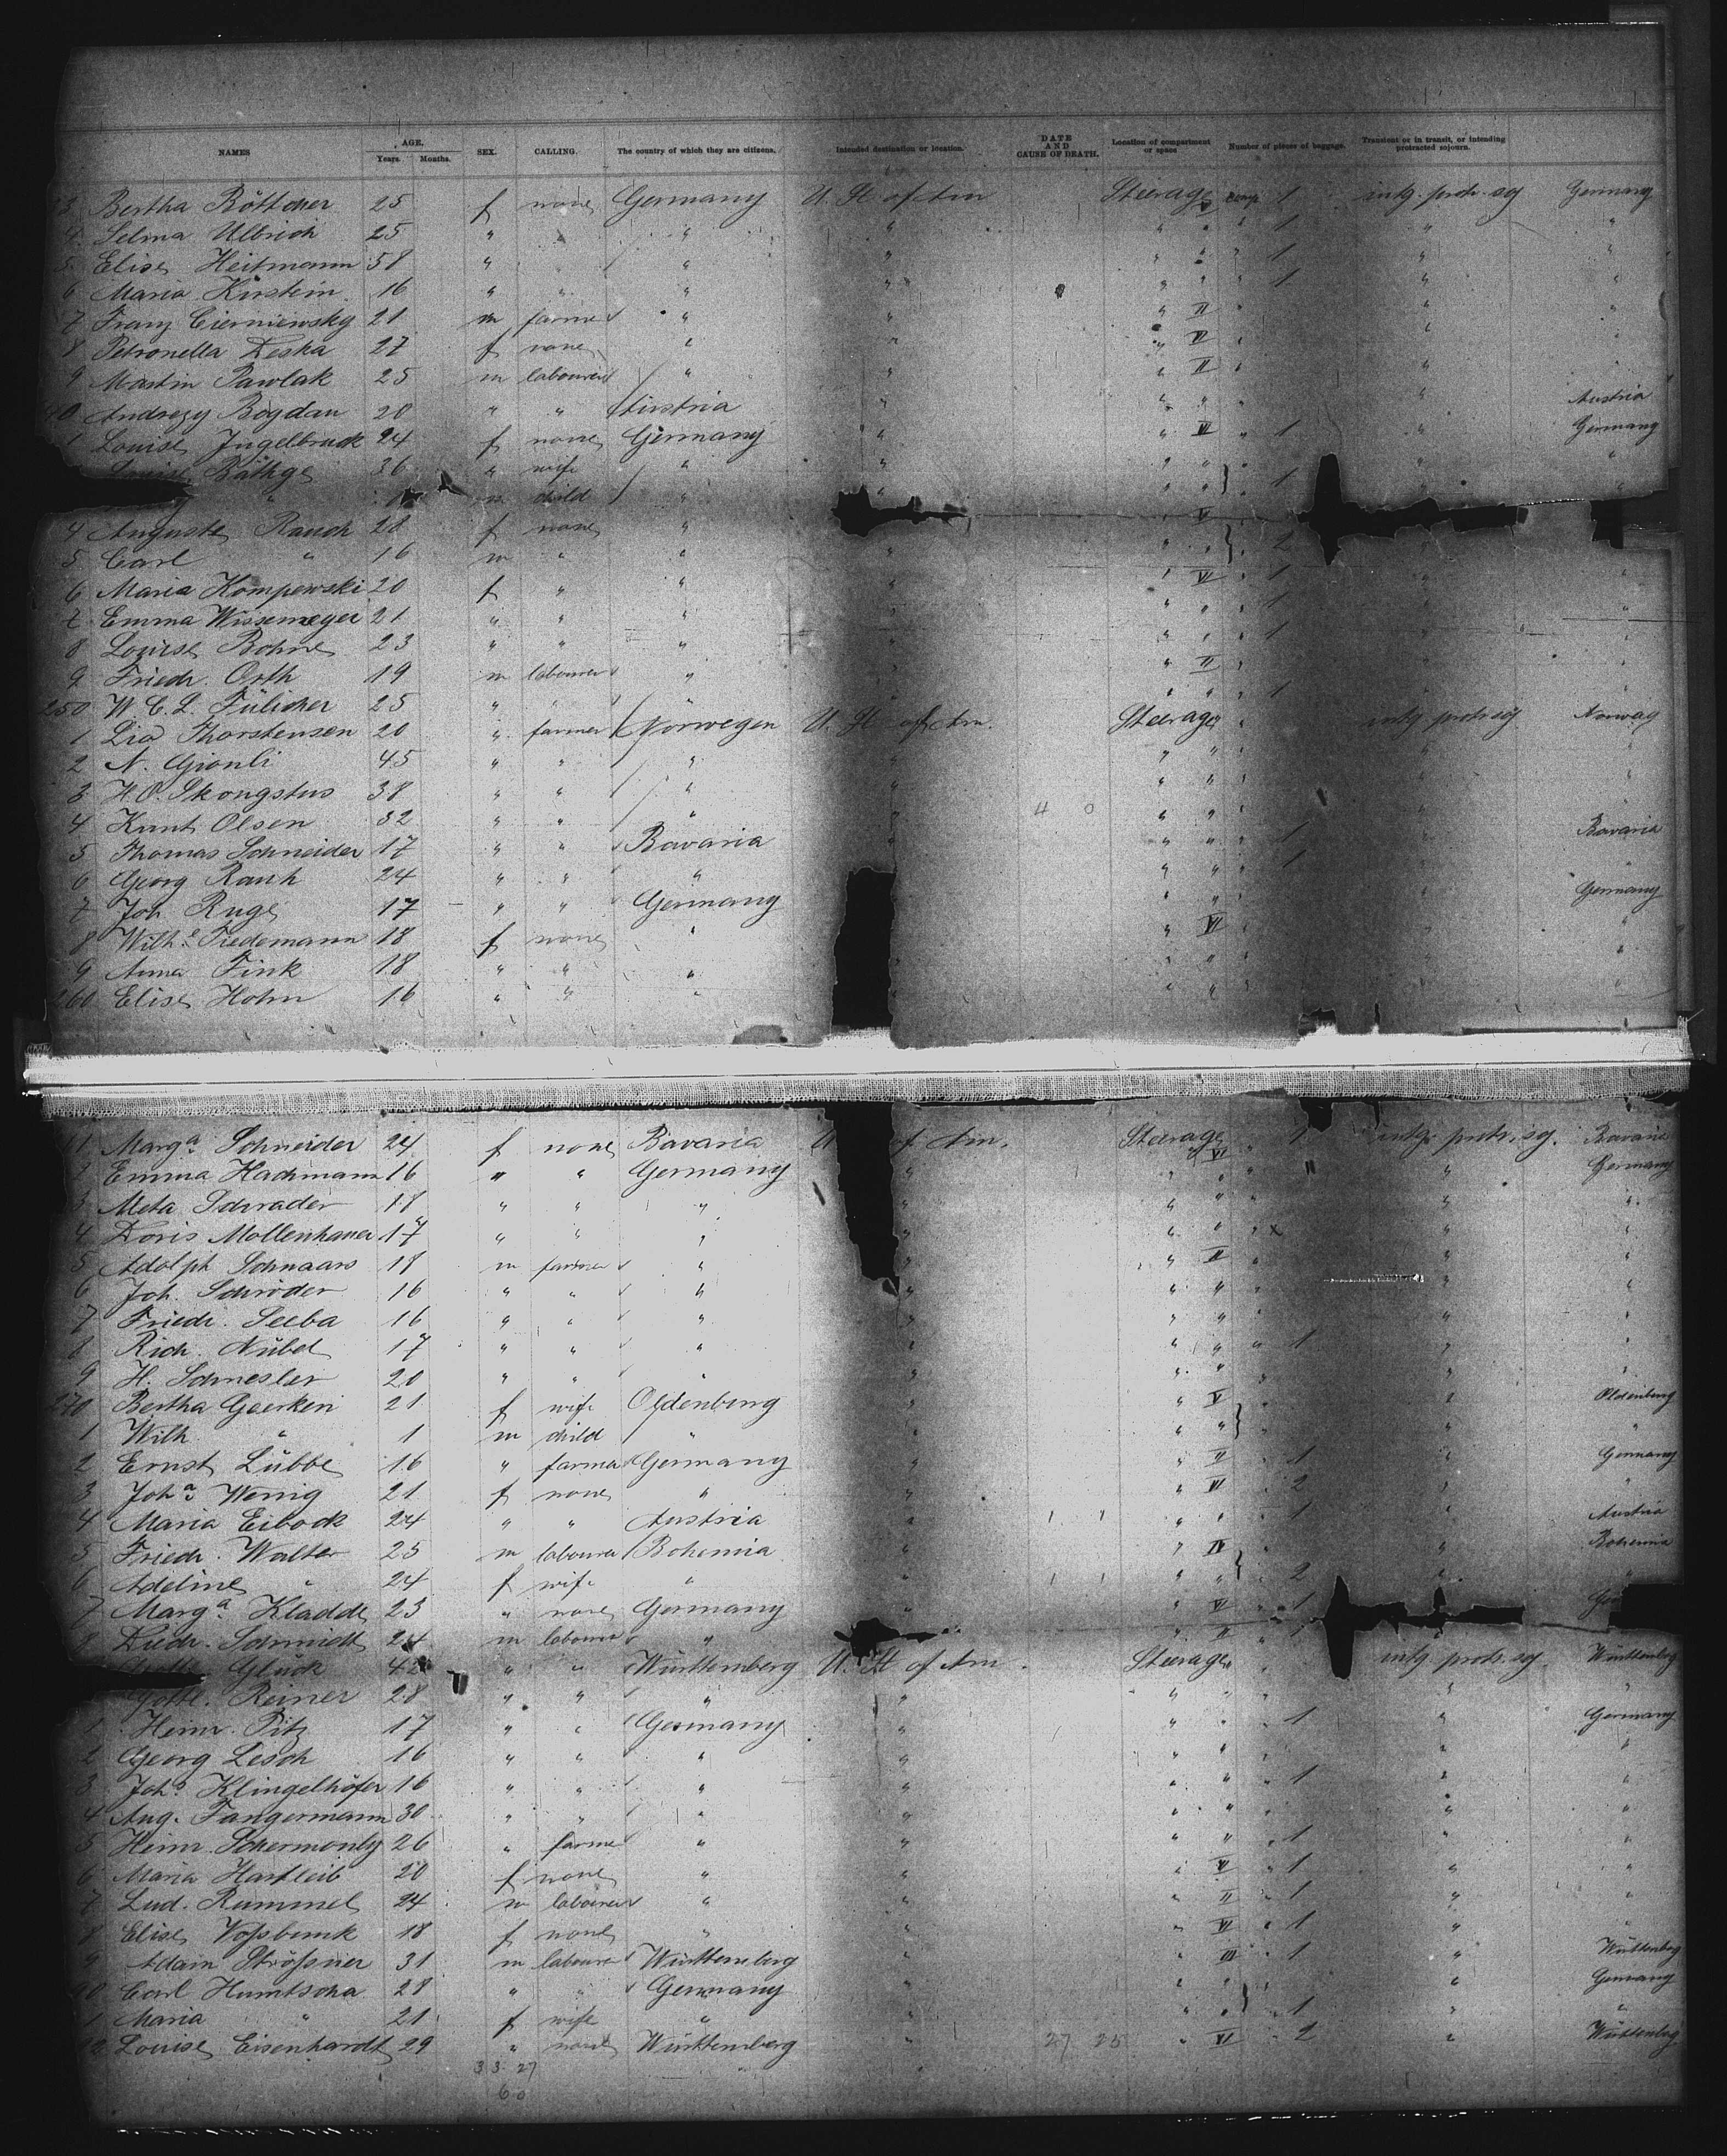 NAMES AGE. Years. Months. SEX. CALLING. The country of which they are citizens. Intended destination or location. DATE AND CAUSE OF DEATH. Location of compartment or space Number of pieces of baggage. Transient or in transit, or intending protracted sojourn.
3 Bertha Böttcher 25 f none Germany U. St of Am Steerage comp 1 intg. protr. soj Germany
4 Selma Ulbrich 25 " " " " " " 1 " "
5 Elise Heitmann 58 " " " " " " 1 " "
6 Maria Kirstein 16 " " " " " " 1 " "
7 Franz Cierniewsky 21 m farmer " " " II " " "
8 Petronella Deska 27 f none " " " VI " " "
9 Martin Pawlak 25 m labourer " " " II " " "
40 Andrezy Bogdan 20 " " Austria " " " " " Austria
1 Louise Jngelbruck 24 f none Germany " " VI " 1 " Germany
Bäthge 36 " wife " " " " "
" m child " " " " " 1 "
4 Auguste Rauch 28 f none " V
5 Carl " 16 m " " " " " " 2
6 Maria Kompewski 20 f " " " " VI " 1 "
7 Emma Wissemeyer 21 " " " " " " " 1 " "
8 Louise Bohne 23 " " " " " " " 1 " "
9 Friedr. Orth 19 m labourer " " " II " " "
250 W. C. L. Fülicher 25 " " " " " " 1 " "
1 Lia Thorstensen 20 " farmer Norwegen U. St. of Am. Steerage " " intg protr soj Norway
2 N. Gionli 45 " " " " " " " " "
3 H. O. Skongstus 38 " " " " " " " " "
4 Knut Olsen 32 " " " " 4 0 " " " " "
5 Thomas Schneider 17 " " Bavaria " " " " 1 " Bavaria
6 Georg Rauh 24 " " " " " 1 " "
7 Joh. Ruge 17 " " Germany " " " Germany
8 Wilhe Tiedemann 18 f none " " VI " "
9 Anna Fink 18 " " " " " " "
260 Elise Hohn 16 " " " " " " " "
1 Marga Schneider 24 f none Bavaria U of Am. Steerage VI " 1 intg. protr. soj. Bavaria
2 Emma Hachmann 16 " " Germany " " " " " " Germany
3 Meta Schrader 18 " " " " " " " " "
4 Doris Mollenhauer 17 " " " " " " " x " "
5 Adolph Schnaars 18 m farmer " " " II " " "
6 Joh. Schröder 16 " " " " " " " " "
7 Friedr. Seeba 16 " " " " " " " " "
8 Rich. Nübel 17 " " " " " " " 1 " "
9 H. Schnesler 20 " " " " " " " " "
270 Bertha Geerken 21 f wife Oldenburg " " V " " Oldenburg
1 Wilh. " 1 m child " " " " " "
2 Ernst Lübbe 16 " farmer Germany " " II " 1 " Germany
3 Joha Wenig 21 f none " " " VI " 2 " "
4 Maria Eibock 24 " " Austria " 1 1 " " " 1 " Austria
5 Friedr. Walter 25 m labourer Bohemia " " IV " " Bohemia
6 Adeline " 24 f wife " " 1 1 " " 2 " "
7 Marga Kladde 23 " none Germany " " VI " 1 Ge
8 Diedr. Schmidt 24 m labourer " " " II " 1 "
Glück 42 " " Württemberg U. St of Am. Steerage " " intg protr. soj. Württembg
Gottl. Reiner 28 " " " " " " " " "
1 Heinr. Pitz 17 " " Germany " " " " 1 " Germany
2 Georg Lesch 16 " " " " " " " " "
3 Johs Klingelhöfer 16 " " " " " " " 1 " "
4 Aug. Tangermann 30 " " " " " " " " "
5 Heinr. Schermonly 26 " farmer " " " " " 1 " "
6 Maria Hartleib 20 f none " " " VI " 1 " "
7 Lud. Rummel 24 m labourer " " " II " 1 " "
8 Elise Voßbrink 18 f none " " " VI " 1 " "
9 Adam Strößner 31 m labourer Württemberg " " III " 1 " Württembg
90 Carl Humtscha 28 " " Germany " " " " " Germany
1 Maria " 21 f wife " " " " " 1 " "
92 Louise Eisenhardt 29 " none Württemberg " 27 25 " VI " 2 " Württembg
33 27
60